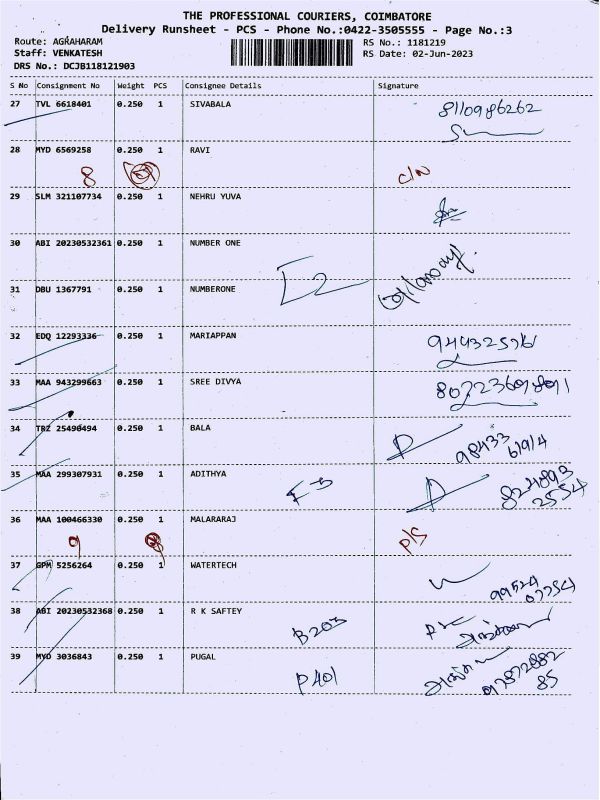 THE PROFESSIONAL COURIERS, COIMBATORE
Delivery Runsheet - PCS - Phone No.:0422-3505555 - Page No.:3
Route: AGRAHARAM RS No.: 1181219
Staff: VENKATESH RS Date: 02-Jun-2023
DRS No.: DCJB118121903
S No Consignment No Weight PCS Consignee Details Signature
27 TVL 6618401 0.250 1 SIVABALA
8110986262
28 MYD 6569258 0.250 1 RAVI
8 C/N
29 SLM 321107734 0.250 1 NEHRU YUVA
30 ABI 20230532361 0.250 1 NUMBER ONE
31 DBU 1367791 0.250 1 NUMBERONE
32 EDQ 12293336 0.250 1 MARIAPPAN
33 MAA 943299663 0.250 1 SREE DIVYA
34 TRZ 25490494 0.250 1 BALA
98433
61914
35 MAA 299307931 0.250 1 ADITHYA
F3 824893
2554
36 MAA 100466330 0.250 1 MALARARAJ
9 P/S
37 GPM 5256264 0.250 1 WATERTECH
99524
07754
38 ABI 20230532368 0.250 1 R K SAFTEY
B203
39 MYD 3036843 0.250 1 PUGAL
P401
85